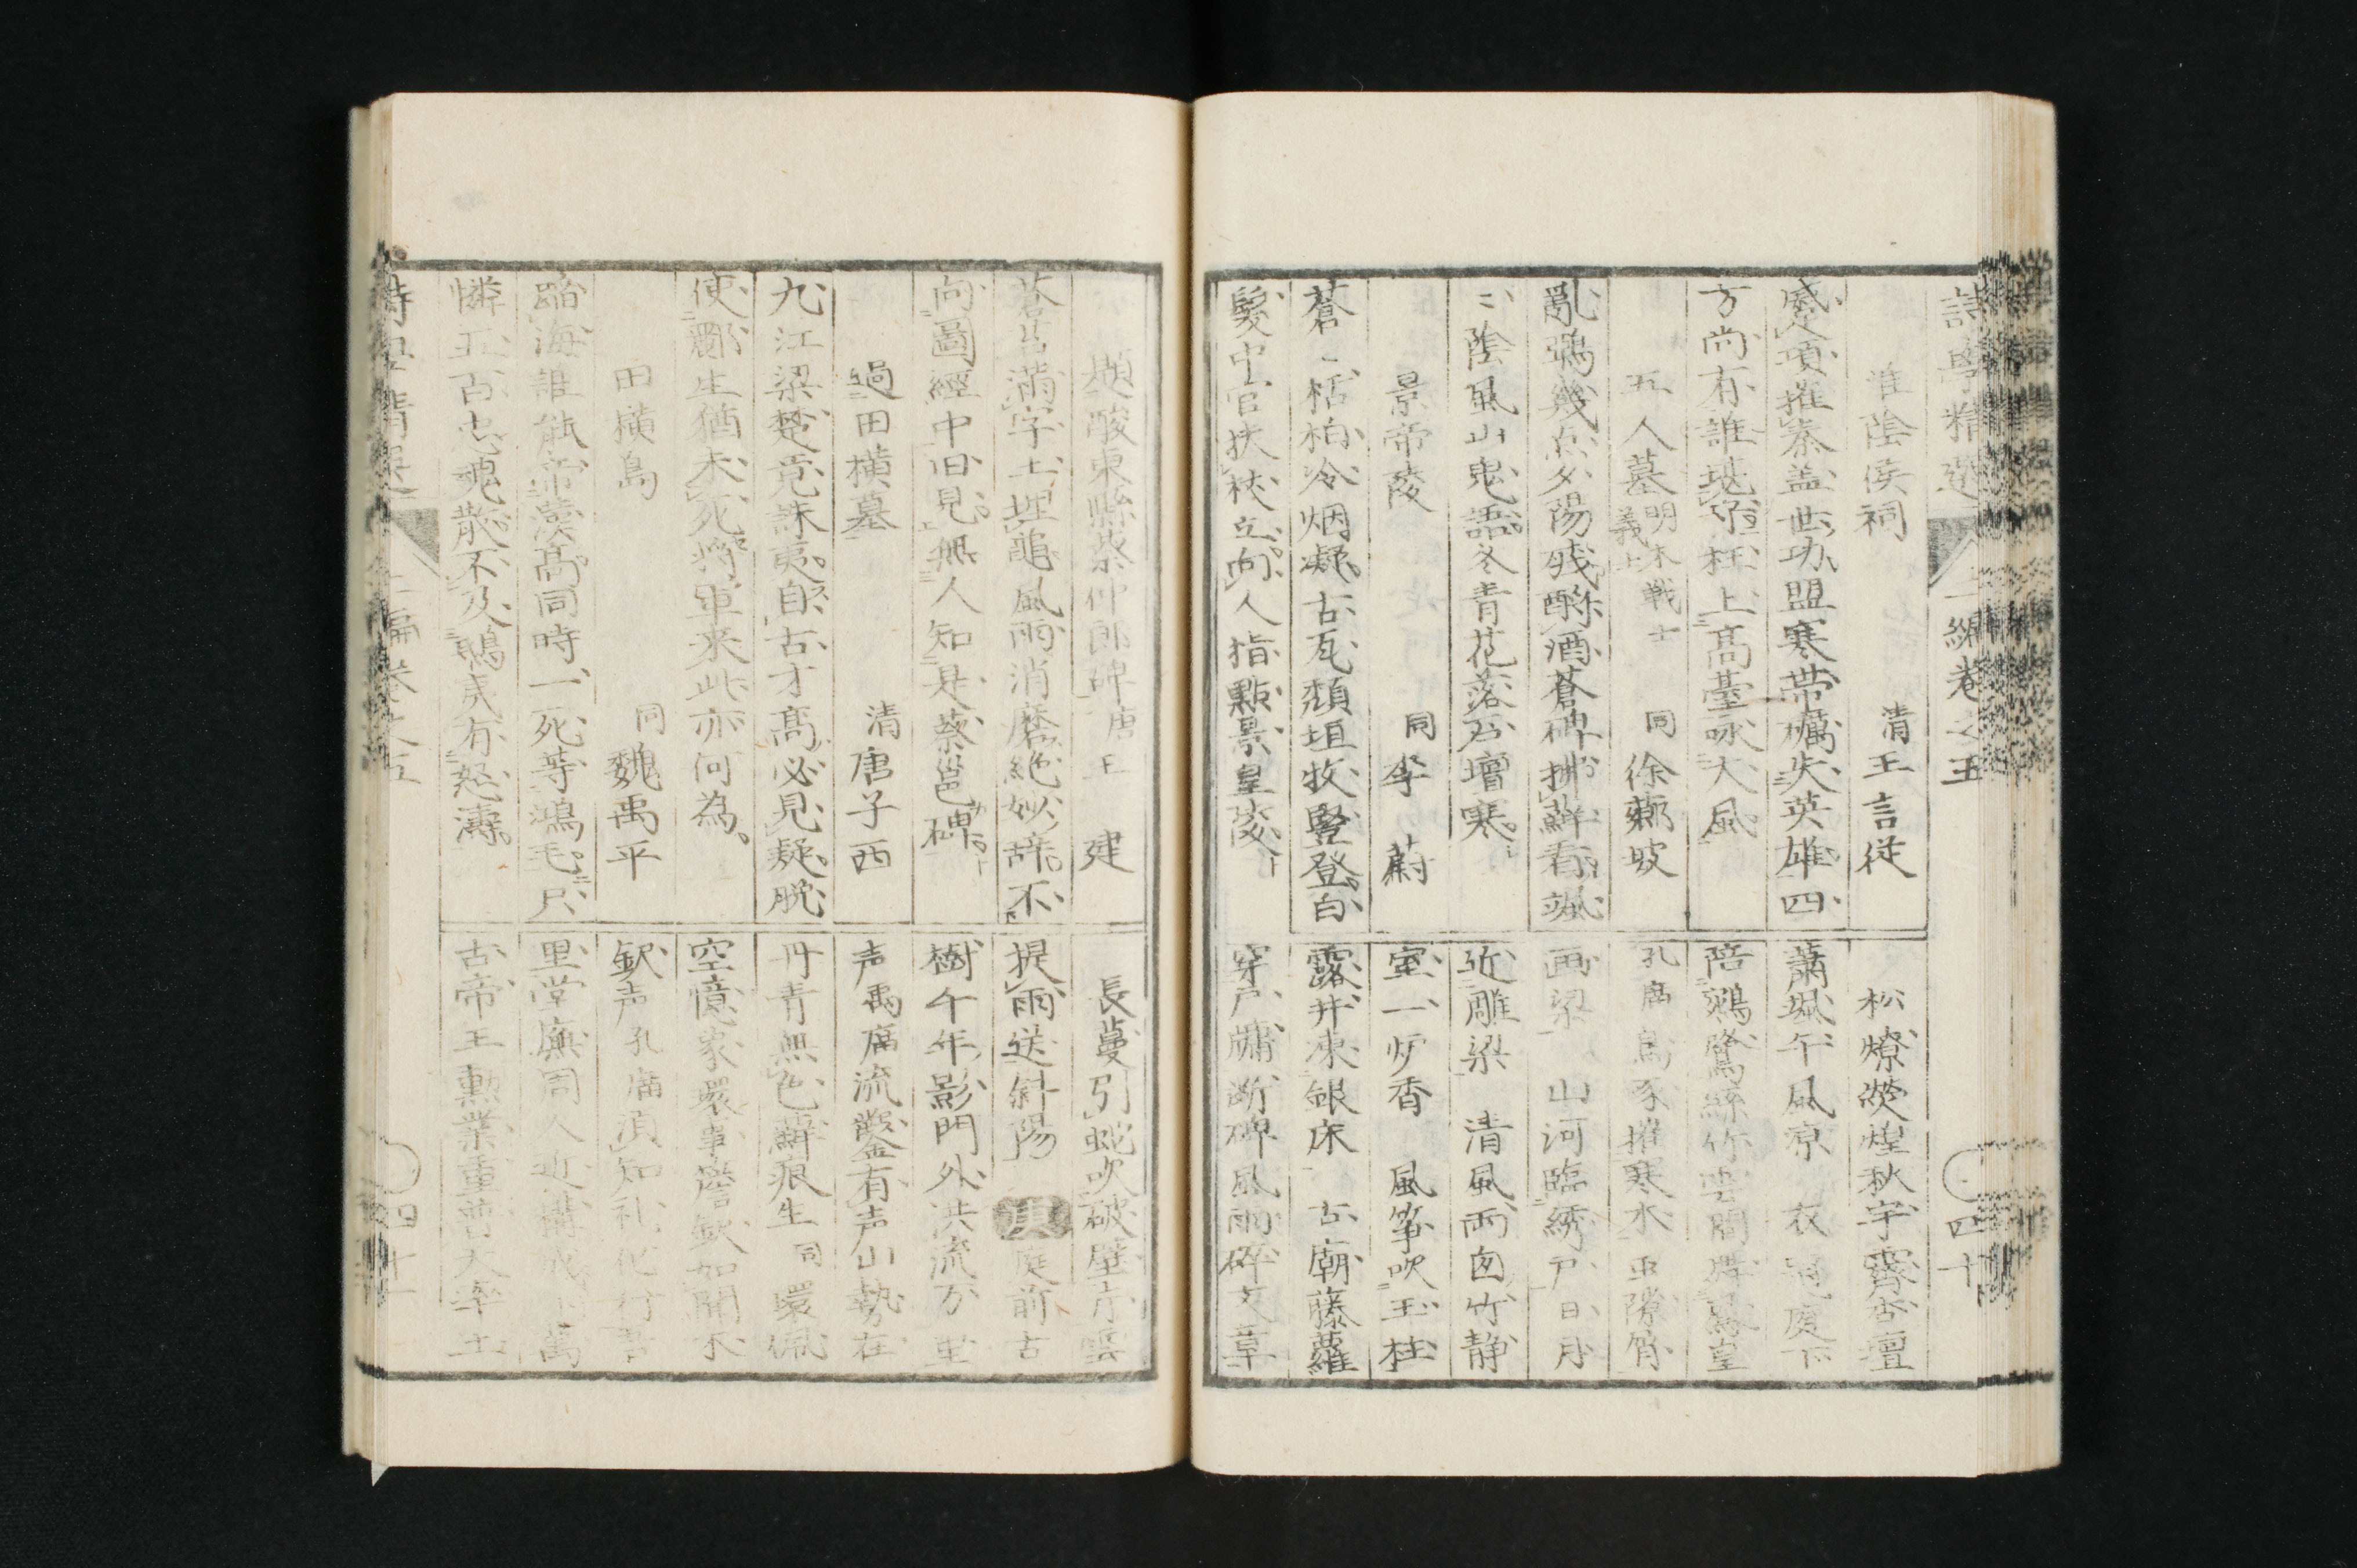 詩學精選
上編卷之五
四十
淮陰侯祠 清王言従
蹙項摧秦蓋世功盟寒帶礪失英雄四
方尚有誰堪
枉上高臺咏大風
五人墓 明末戦士 義士 同徐蘋坡
亂鴉幾点夕陽残酹酒蒼碑拂蘚看颯
〻陰風山鬼語冬青花落石壇寒
景帝陵 同李蔚
蒼〻栝柏冷烟凝古瓦頽垣牧豎登白
髪中官扶杖立向人指點景皇陵
松燎熒煌秋宇霽杏壇
蕭颯午風凉 衣
廈下
陪鵷鷺絲竹雲間
皇
孔廟
摧寒木
隙
画梁 山河臨綉戸日月
近雕梁 清風両囱竹静
室一炉香 風筝吹玉柱
露井凍銀床 古廟藤蘿
穿戸牖断碑風雨碎文章
題酸棗縣蔡仲郎碑 唐王建
蒼苔満字土埋龜風雨消磨絶妙辞不
向圖經中旧見無人知是蔡邕碑
過田横墓 清唐子西
九江梁楚竟誅夷自古才高必見疑脱
使酈生猶未死將軍来此亦何為
田横島 同魏禹平
蹈海誰能帝漢高同時一死等鴻毛只
憐五百忠魂散不及鴟夷有怒濤
長蔓引蛇吹破壁片雲
提雨送斜陽
庭前古
樹午年影門外洪流万里
声禹廟流鑿有声山勢在
丹青無色蘚痕生 同 環佩
空憶
環
歎如聞木
歎声孔廟須知礼化行
里堂廡同人近
萬
古帝王勲業重普天率土
詩學精選
上編卷之五
四十一